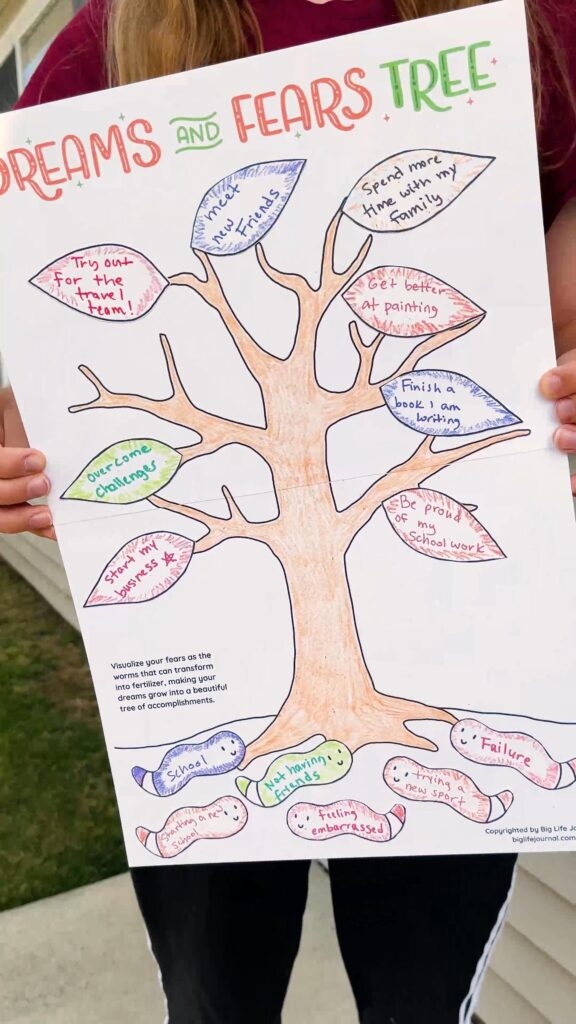 DREAMS AND FEARS TREE
meet
new
Friends
Spend more
time with my
family!
Try out
for the
travel
team!
Get better
at painting
Finish a
book I am
writing
Overcome
challenges
Be proud
of my
School work
Start my
business
Visualize your fears as the
worms that can transform
into fertilizer, making your
dreams grow into a beautiful
tree of accomplishments.
School
Not having
friends
Failure
trying a
new sport
Starting a new
School
feeling
embarrassed
Copyrighted by Big Life Jo
biglifejournal.com